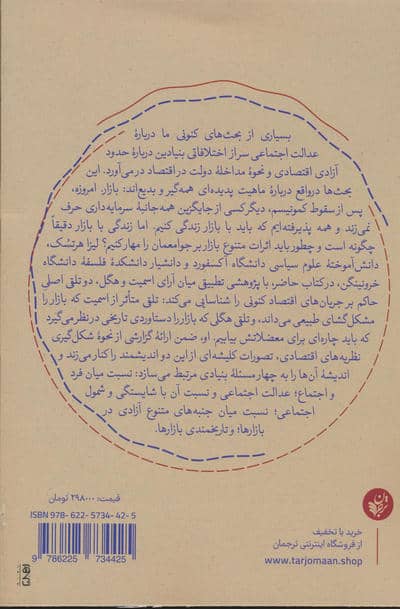 بسیاری از بحث‌های کنونی ما دربارهٔ
عدالت اجتماعی سر از اختلافاتی بنیادین دربارهٔ حدود
آزادی اقتصادی و نحوهٔ مداخلهٔ دولت در اقتصاد درمی‌آورد. این
بحث‌ها درواقع دربارهٔ ماهیت پدیده‌ای همه‌گیر و بدیع‌اند: بازار. امروزه،
پس از سقوط کمونیسم، دیگر کسی از جایگزین همه‌جانبهٔ سرمایه‌داری حرف
نمی‌زند و همه پذیرفته‌ایم که باید با بازار زندگی کنیم. اما زندگی با بازار دقیقاً
چگونه است و چطور باید اثرات متنوع بازار بر جوامعمان را مهار کنیم؟ لیزا هرتسگ،
دانش‌آموختهٔ علوم سیاسی دانشگاه آکسفورد و دانشیار دانشکدهٔ فلسفهٔ دانشگاه
خرونینگن، در کتاب حاضر، با پژوهشی تطبیقی میان آرای اسمیت و هگل، دو تلقی اصلی
حاکم بر جریان‌های اقتصاد کنونی را شناسایی می‌کند: تلقی متأثر از اسمیت که بازار را
مشکل‌گشای طبیعی می‌داند، و تلقی هگلی که بازار را دستاوردی تاریخی در نظر می‌گیرد
که باید چاره‌ای برای معضلاتش بیابیم. او، ضمن ارائهٔ گزارشی از نحوهٔ شکل‌گیری
نظریه‌های اقتصادی، تصورات کلیشه‌ای از این دو اندیشمند را کنار می‌زند و
اندیشهٔ آن‌ها را به چهار مسئلهٔ بنیادی مرتبط می‌سازد: نسبت میان فرد
و اجتماع؛ عدالت اجتماعی و نسبت آن با شایستگی و شمول
اجتماعی؛ نسبت میان جنبه‌های متنوع آزادی در
بازارها؛ و تاریخمندی بازارها.
قیمت: ۲۹۸۰۰۰ تومان
ISBN 978- 622- 5734- 42- 5
9 786225 734425
ترجمان
خرید با تخفیف
از فروشگاه اینترنتی ترجمان
www.tarjomaan.shop